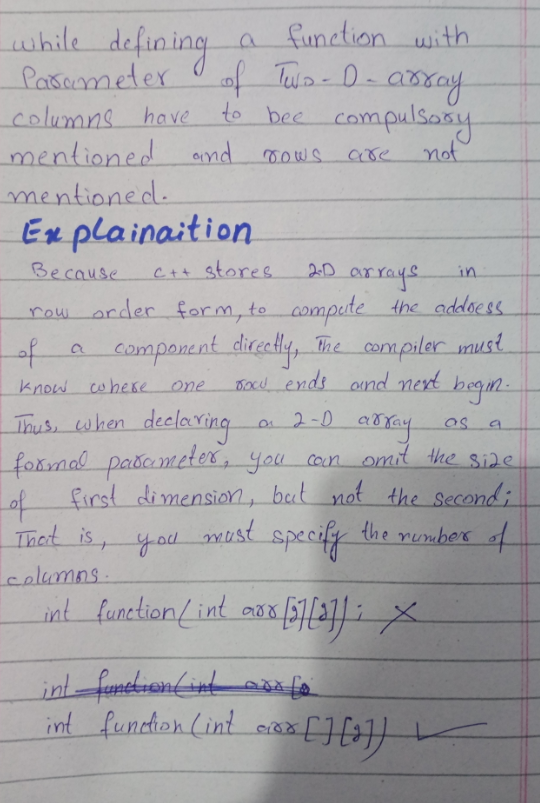 while defining a function with
Parameter of Two-D-array
columns have to bee compulsory
mentioned and rows are not
mentioned.
Explainaition
Because c++ stores 2D arrays in
row order form, to compute the address
of a component directly, The compiler must
know where one row ends and next begin.
Thus, when declaring a 2-D array as a
formal parameter, you can omit the size
of first dimension, but not the second;
That is, you must specify the number of
columns.
int function(int arr[2][2]); ✗
int function(int arr[
int function(int arr[ ][2]) ✓